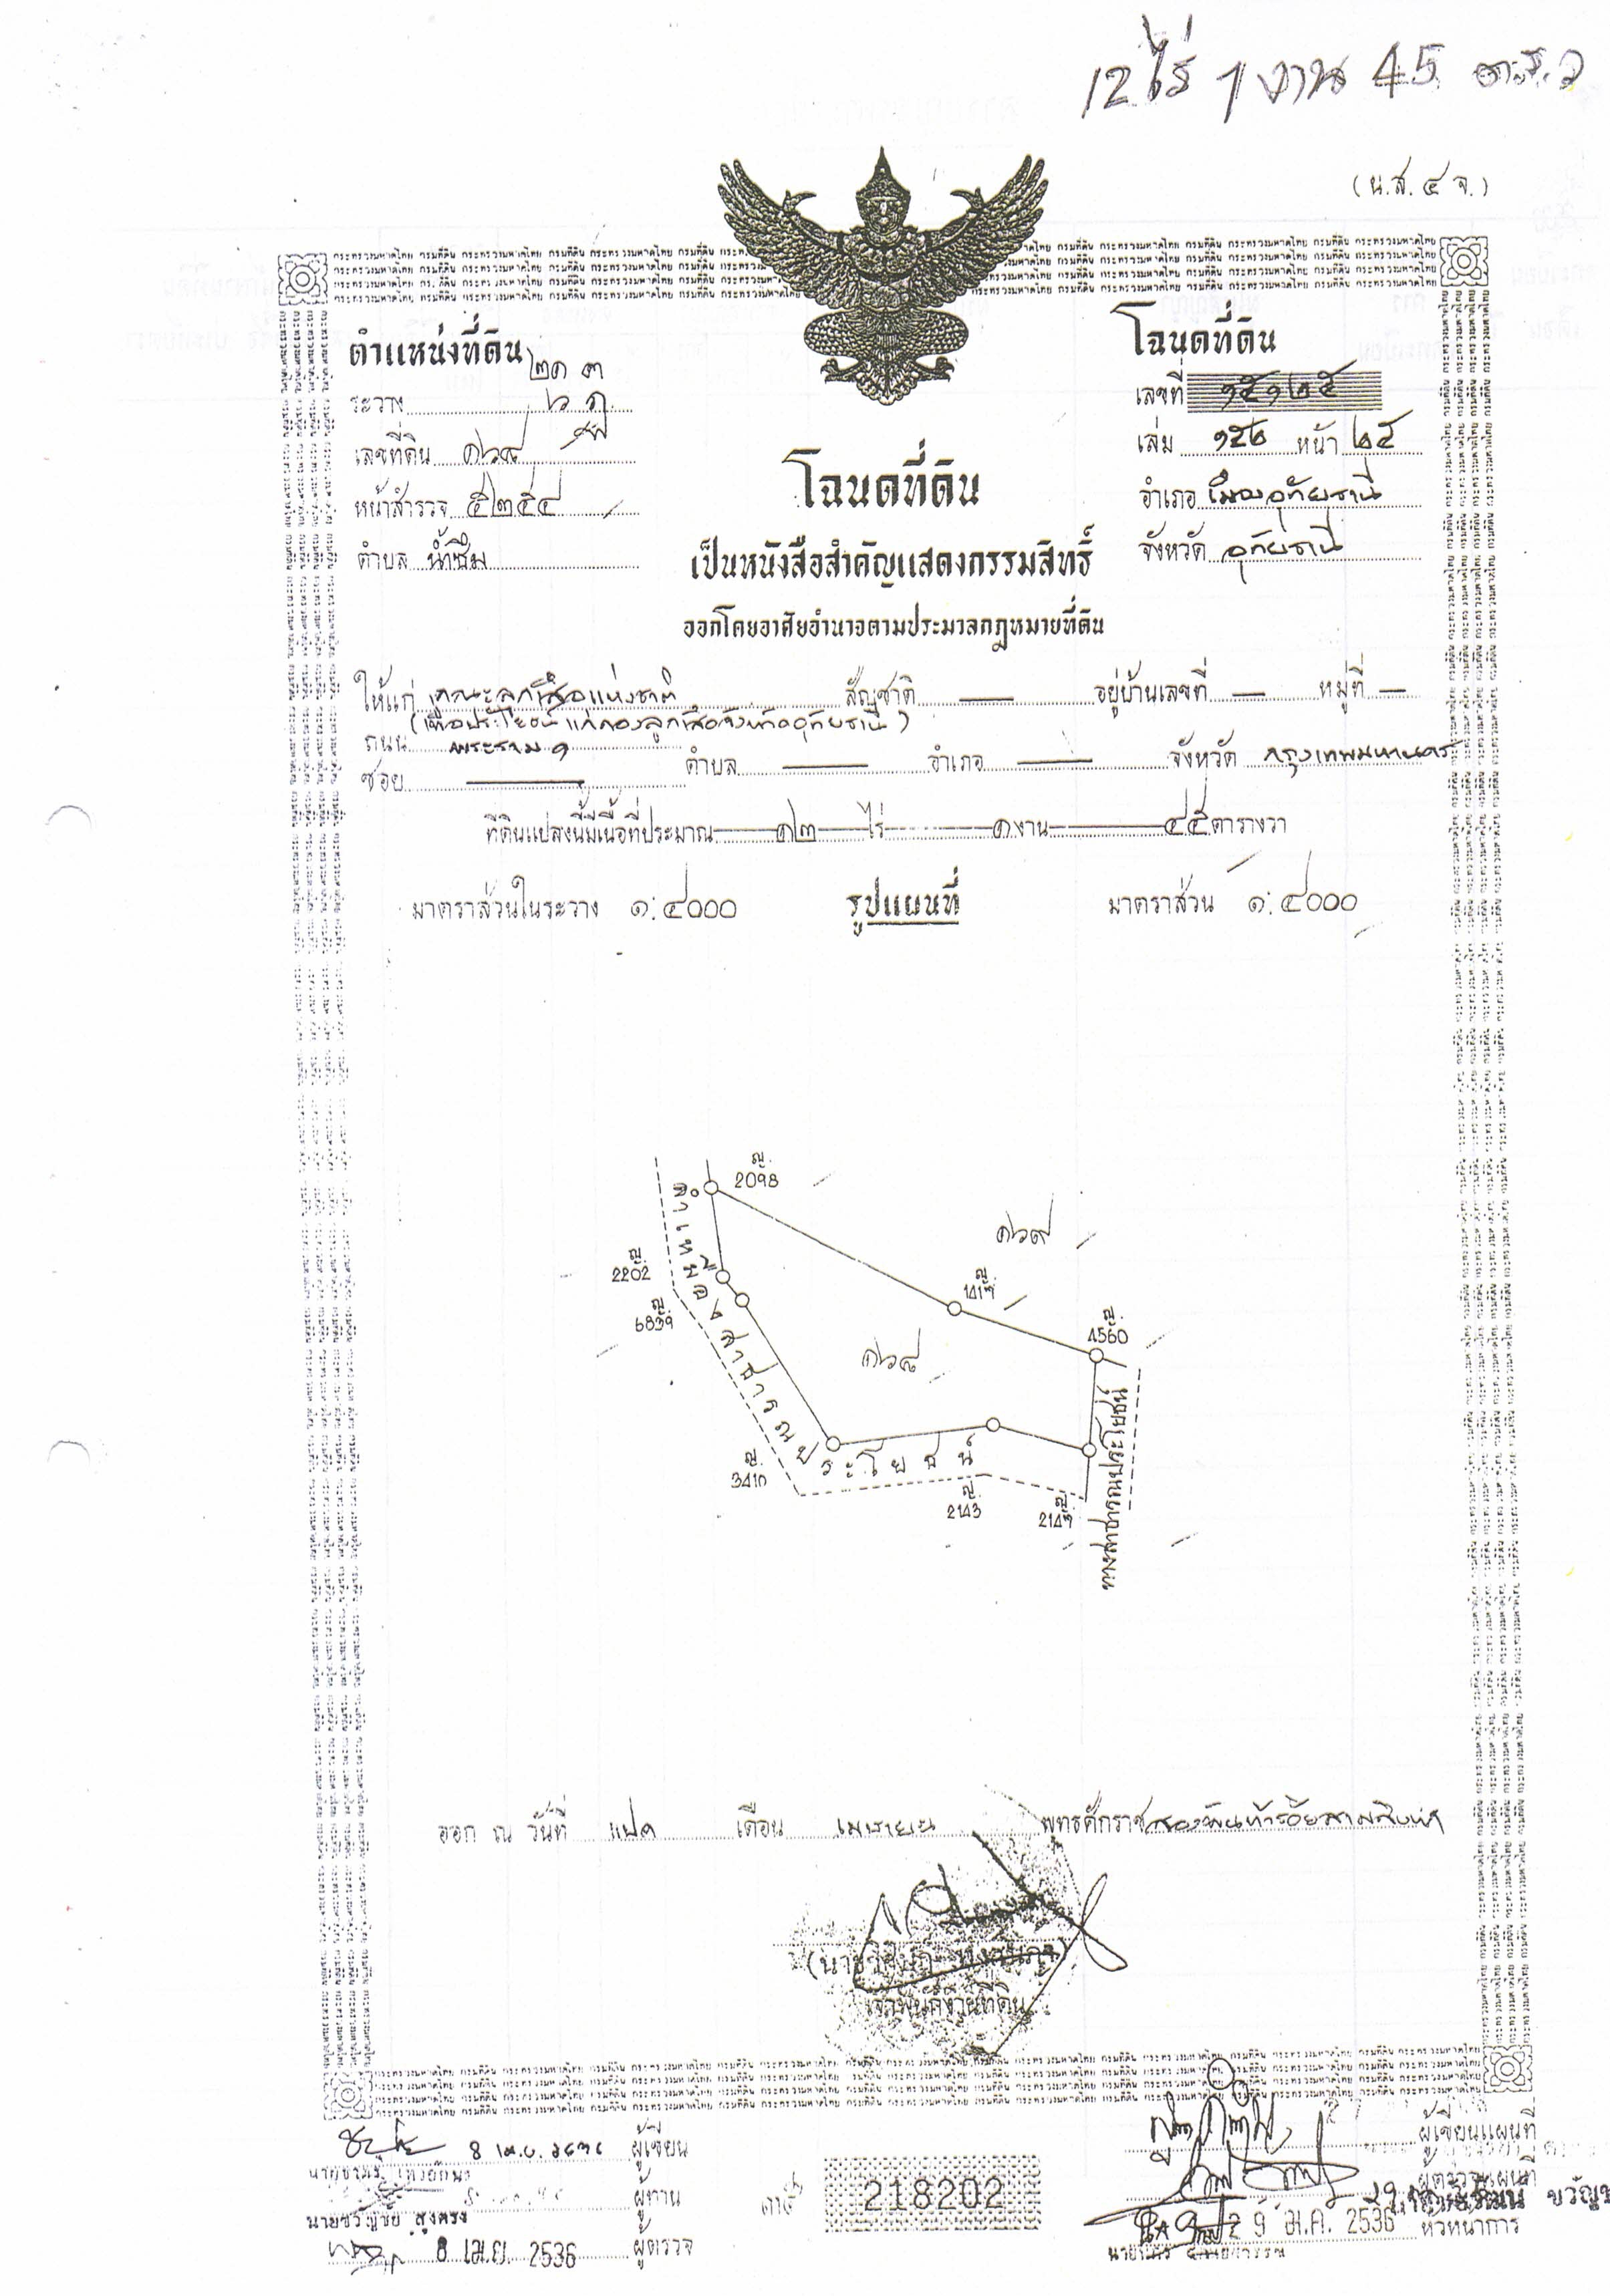 12 ไร่ 1 งาน 45 ต.ร.ว
(น.ส. ๔ จ.)
ตำแหน่งที่ดิน
ระวาง
เลขที่ดิน ๑๖๘
หน้าสำรวจ ๕๒๕๔
ตำบล น้ำซึม
โฉนดที่ดิน
เลขที่ ๑๕๑๒๕
เล่ม ๑๕๒ หน้า ๒๕
อำเภอ เมืองอุทัยธานี
จังหวัด อุทัยธานี
โฉนดที่ดิน
เป็นหนังสือสำคัญแสดงกรรมสิทธิ์
ออกโดยอาศัยอำนาจตามประมวลกฎหมายที่ดิน
ให้แก่ คณะลูกเสือแห่งชาติ สัญชาติ — อยู่บ้านเลขที่ — หมู่ที่ —
(เพื่อประโยชน์แก่กองลูกเสือจังหวัดอุทัยธานี)
ถนน พระราม ๑
ซอย — ตำบล — อำเภอ — จังหวัด กรุงเทพมหานคร
ที่ดินแปลงนี้มีเนื้อที่ประมาณ ๑๒ ไร่ ๑ งาน ๔๕ ตารางวา
มาตราส่วนในระวาง ๑:๔๐๐๐ รูปแผนที่ มาตราส่วน ๑:๔๐๐๐
ญ. 2098
๑๖๙
ญ. 2202
ญ. 6839
ญ. 4560
๑๖๘
ลำเหมืองสาธารณประโยชน์
ทางสาธารณประโยชน์
ญ. 3410
ญ. 2143
ออก ณ วันที่ แปด เดือน เมษายน พุทธศักราช สองพันห้าร้อยสามสิบหก
เจ้าพนักงานที่ดิน
ผู้เขียน
ผู้ทาน
นายขวัญชัย
8 เม.ย. 2536 ผู้ตรวจ
218202
ผู้เขียนแผนที่
ผู้ตรวจแผนที่
2 9 มี.ค. 2536 หัวหน้าการ